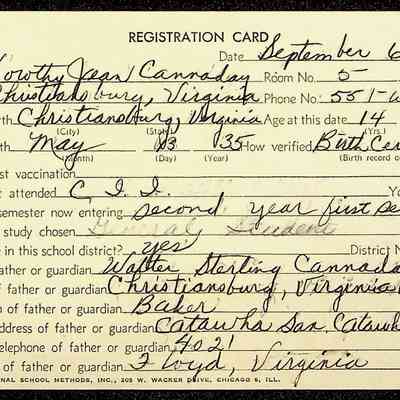 REGISTRATION CARD
Date September
Dorothy Jean Cannaday Room No. 5
Christiansburg, Virginia Phone No. 551-W
th Christiansburg, Virginia Age at this date 14
(City) (State) (Yrs.)
th May 03 35 How verified Birth Cer
(Month) (Day) (Year) (Birth record o
st vaccination
t attended C. I. I.
semester now entering second year first se
study chosen General Student
e in this school district? yes District N
ather or guardian Walter Sterling Cannada
f father or guardian Christiansburg, Virginia
n of father or guardian Baker
ddress of father or guardian Catawba San. Catawb
elephone of father or guardian 4021
of father or guardian Floyd, Virginia
NAL SCHOOL METHODS, INC., 205 W. WACKER DRIVE, CHICAGO 6, ILL.